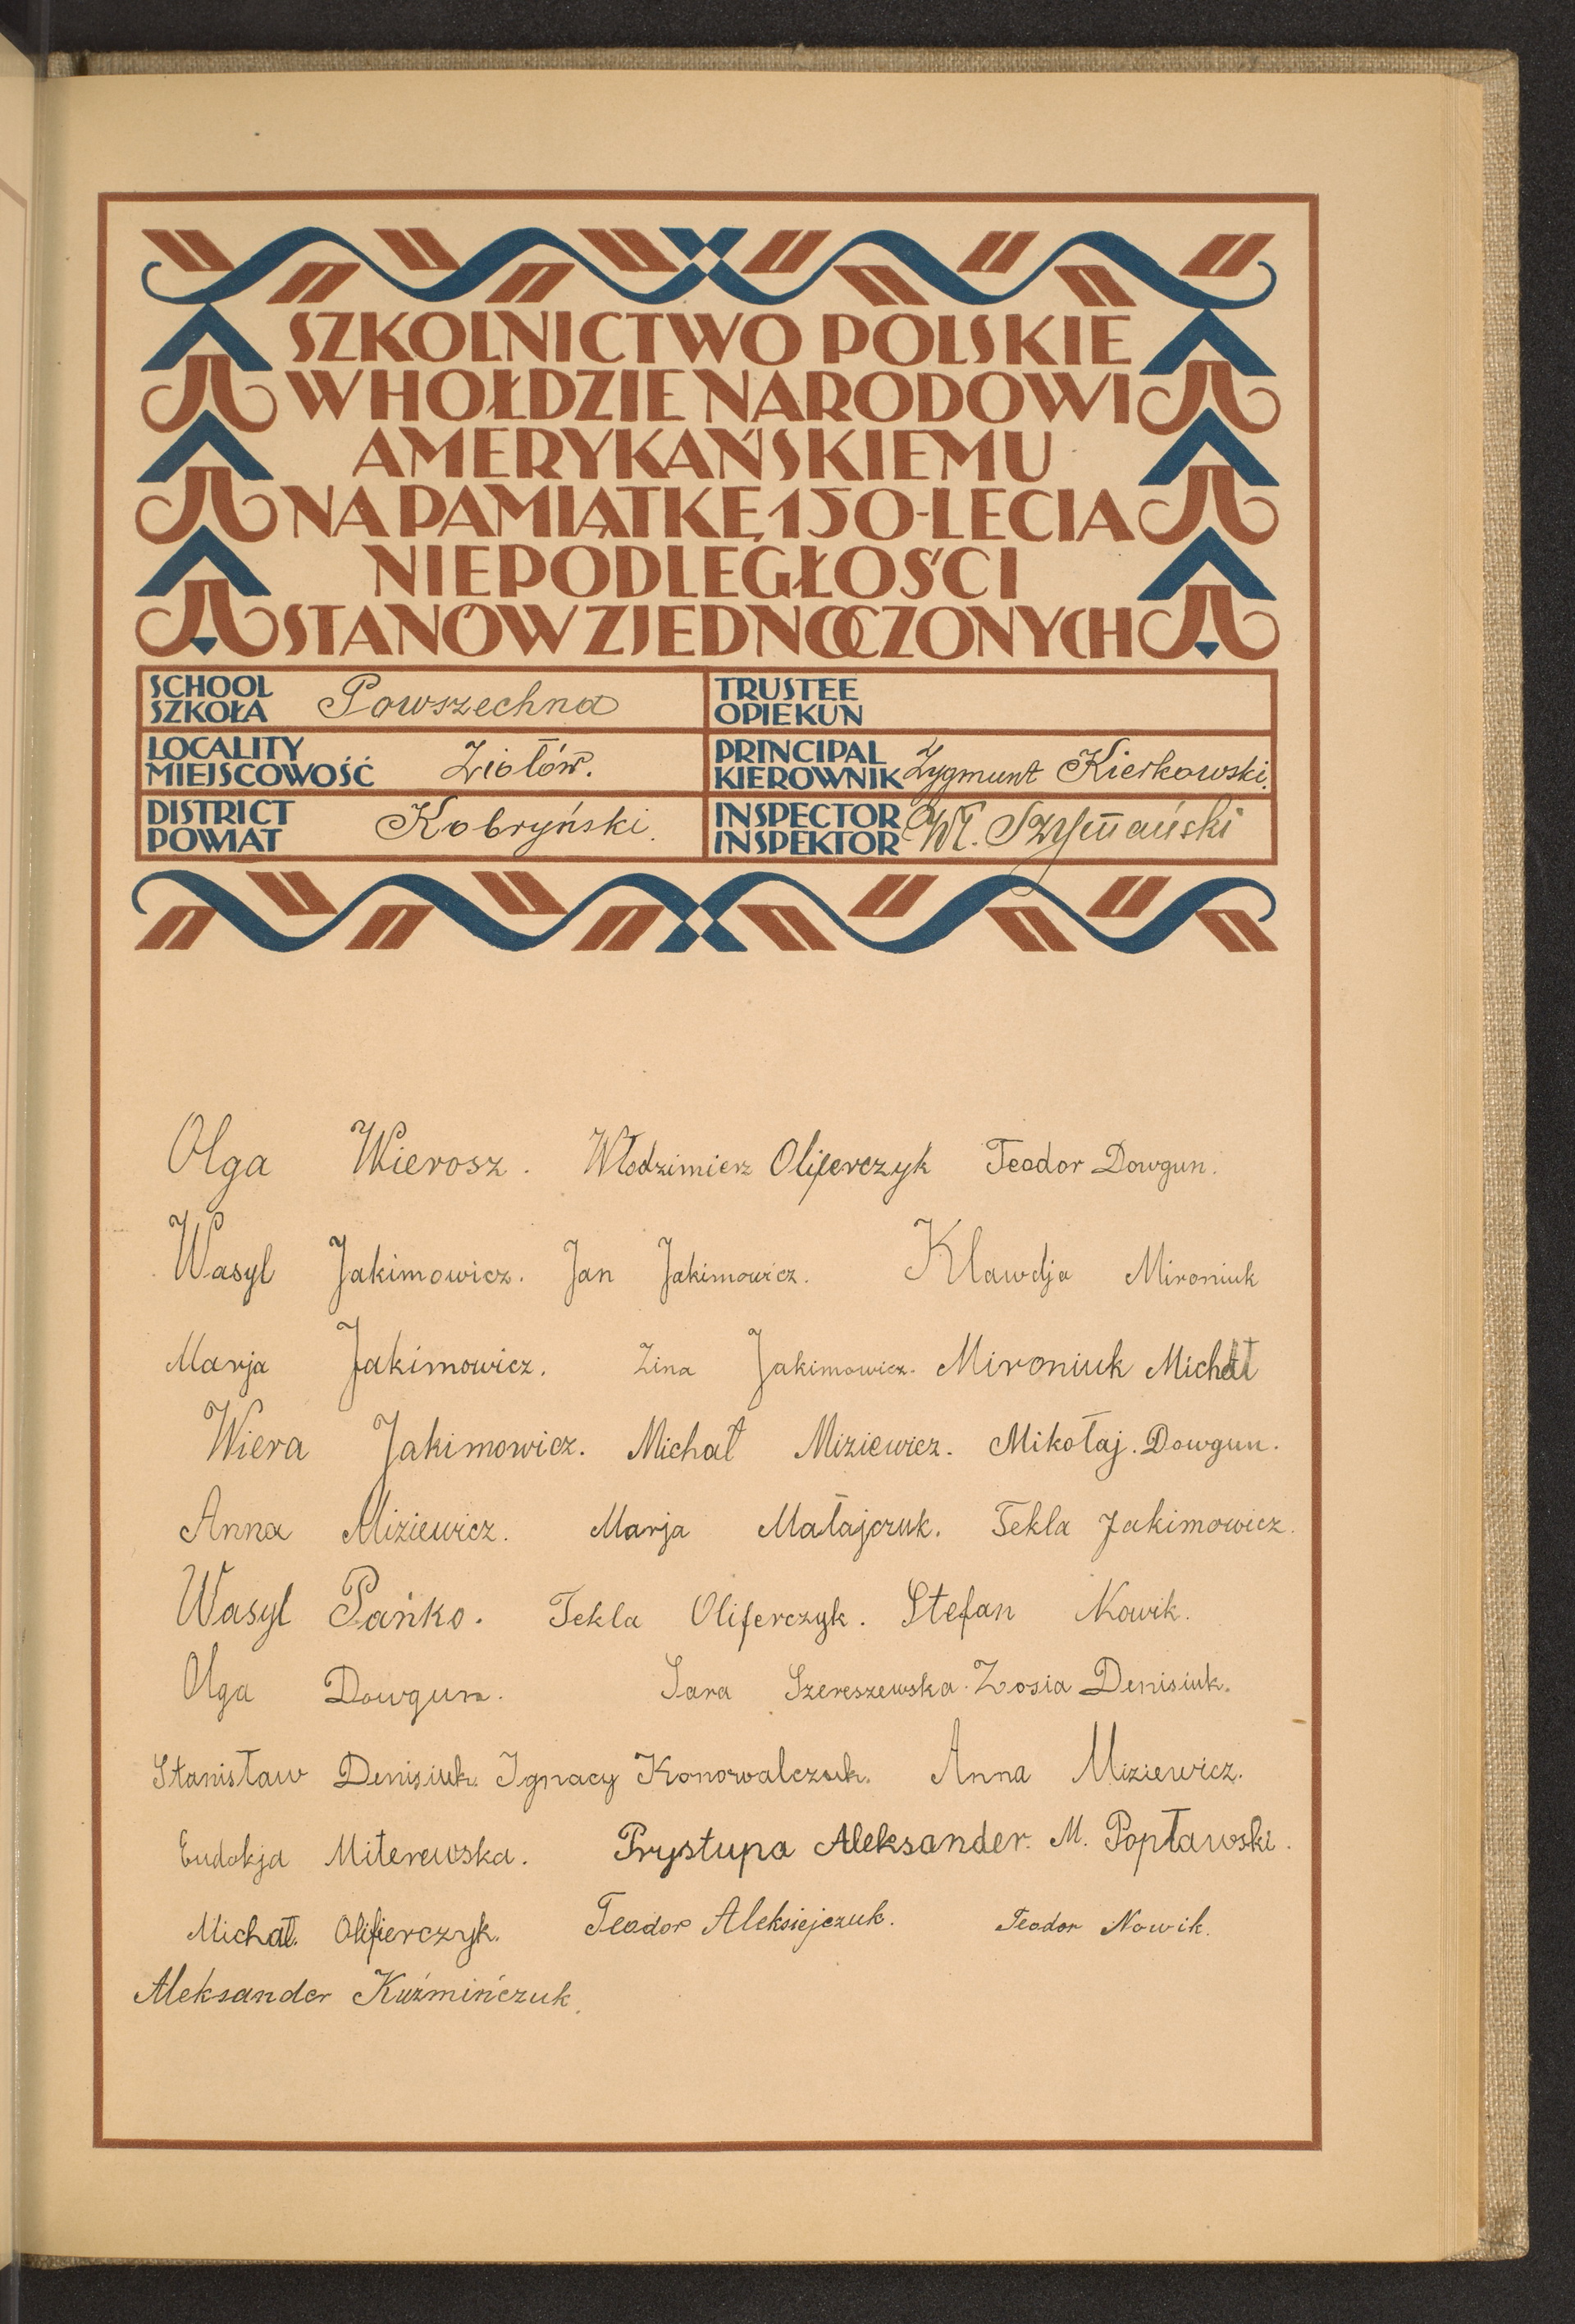 SZKOLNICTWO POLSKIE
W HOŁDZIE NARODOWI
AMERYKAŃSKIEMU
NA PAMIĄTKĘ 150-LECIA
NIEPODLEGŁOŚCI
STANÓW ZJEDNOCZONYCH
SCHOOL
SZKOŁA Powszechna
TRUSTEE
OPIEKUN
LOCALITY
MIEJSCOWOŚĆ Ziołów.
PRINCIPAL
KIEROWNIK Zygmunt Kierkowski.
DISTRICT
POWIAT Kobryński.
INSPECTOR
INSPEKTOR Wł. Szymański
Olga Wierosz. Włodzimierz Oliferczyk Teodor Dowgun.
Wasyl Jakimowicz. Jan Jakimowicz. Klawdja Mironiuk
Marja Jakimowicz. Zina Jakimowicz. Mironiuk Michał
Wiera Jakimowicz. Michał Miziewicz. Mikołaj. Dowgun.
Anna Miziewicz. Marja Małajczuk. Tekla Jakimowicz.
Wasyl Pańko. Tekla Oliferczyk. Stefan Nowik.
Olga Dowgun. Sara Szereszewska. Zosia Denisiuk.
Stanisław Denisiuk. Ignacy Konowalczuk. Anna Miziewicz.
Eudokja Miterewska. Prystupa Aleksander. M. Popławski.
Michał. Olifierczyk. Teodor Aleksiejczuk. Teodor Nowik.
Aleksander Kuźmińczuk.